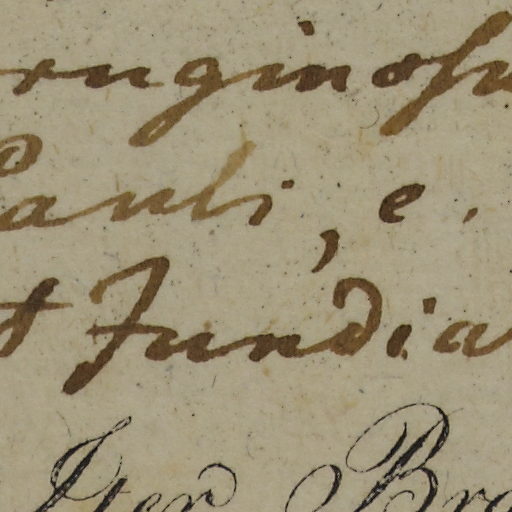 ruginosu
Pauli, e.
t Fundia
Iter Bra